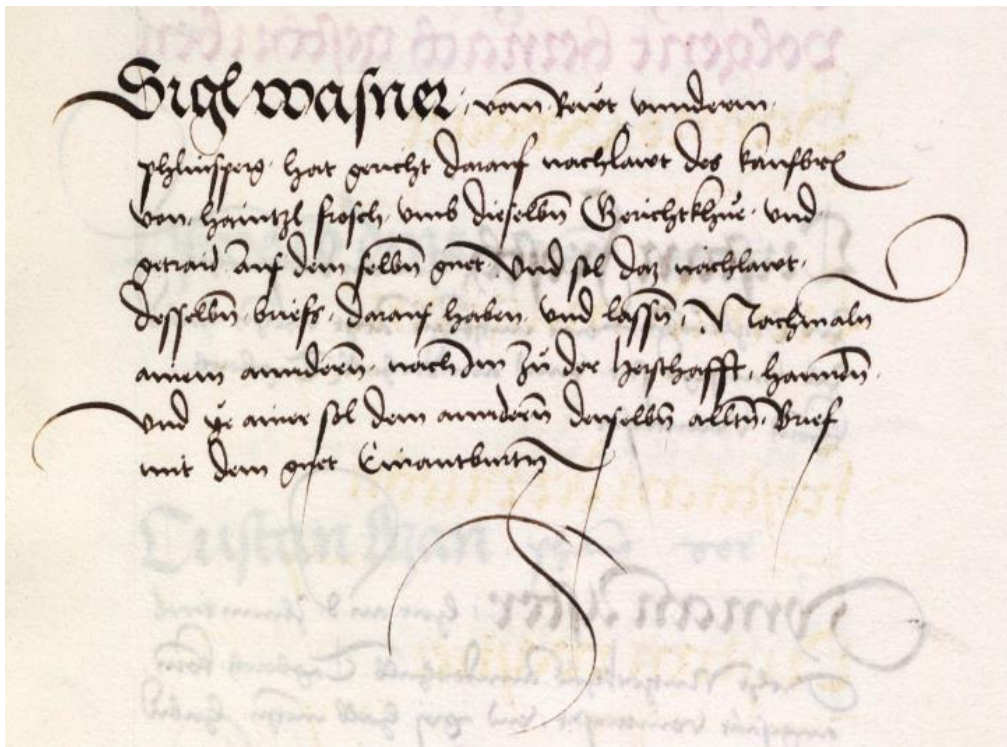 Sigl wasner. vom Rewt vnnderm.
phlinsperg. hat gericht darauf nachlawt des kaufbrī
von. haintzl frosch. vmb dieselbn̄ Gerichtkhüe. vnd
getraid auf dem selbn̄ guet Vnd sol daz nachlawt.
desselbn̄. briefs. darauf haben. vnd lassn̄. Nachmaln
ainem anndern̄. nach Im zů der herschafft. hannden̄.
vnd ye ainer sol dem anndern̄ denselbn̄ alltn̄. Brief
mit dem guet Emantburtn̄